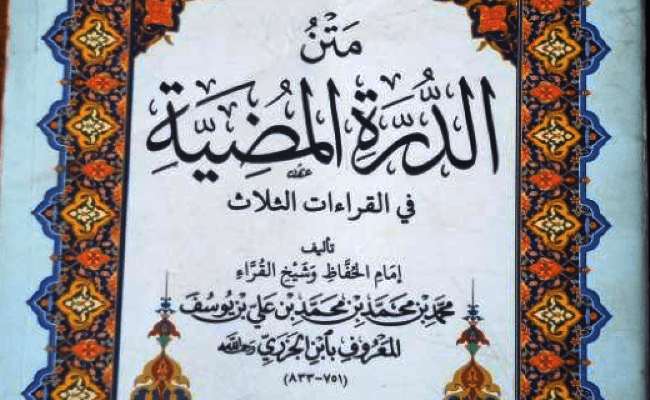 مَتْنُ
الدُّرَّةِ المُضِيَّةِ
في القراءات الثلاث
تأليف
إِمَامِ الحُفَّاظِ وَشَيْخِ القُرَّاءِ
محمَّد بن محمَّد بن محمَّد بن علي بن يُوسُف
المَعْرُوفِ بِابْنِ الجَزَرِيِّ رحمه الله
(٧٥١-٨٣٣)